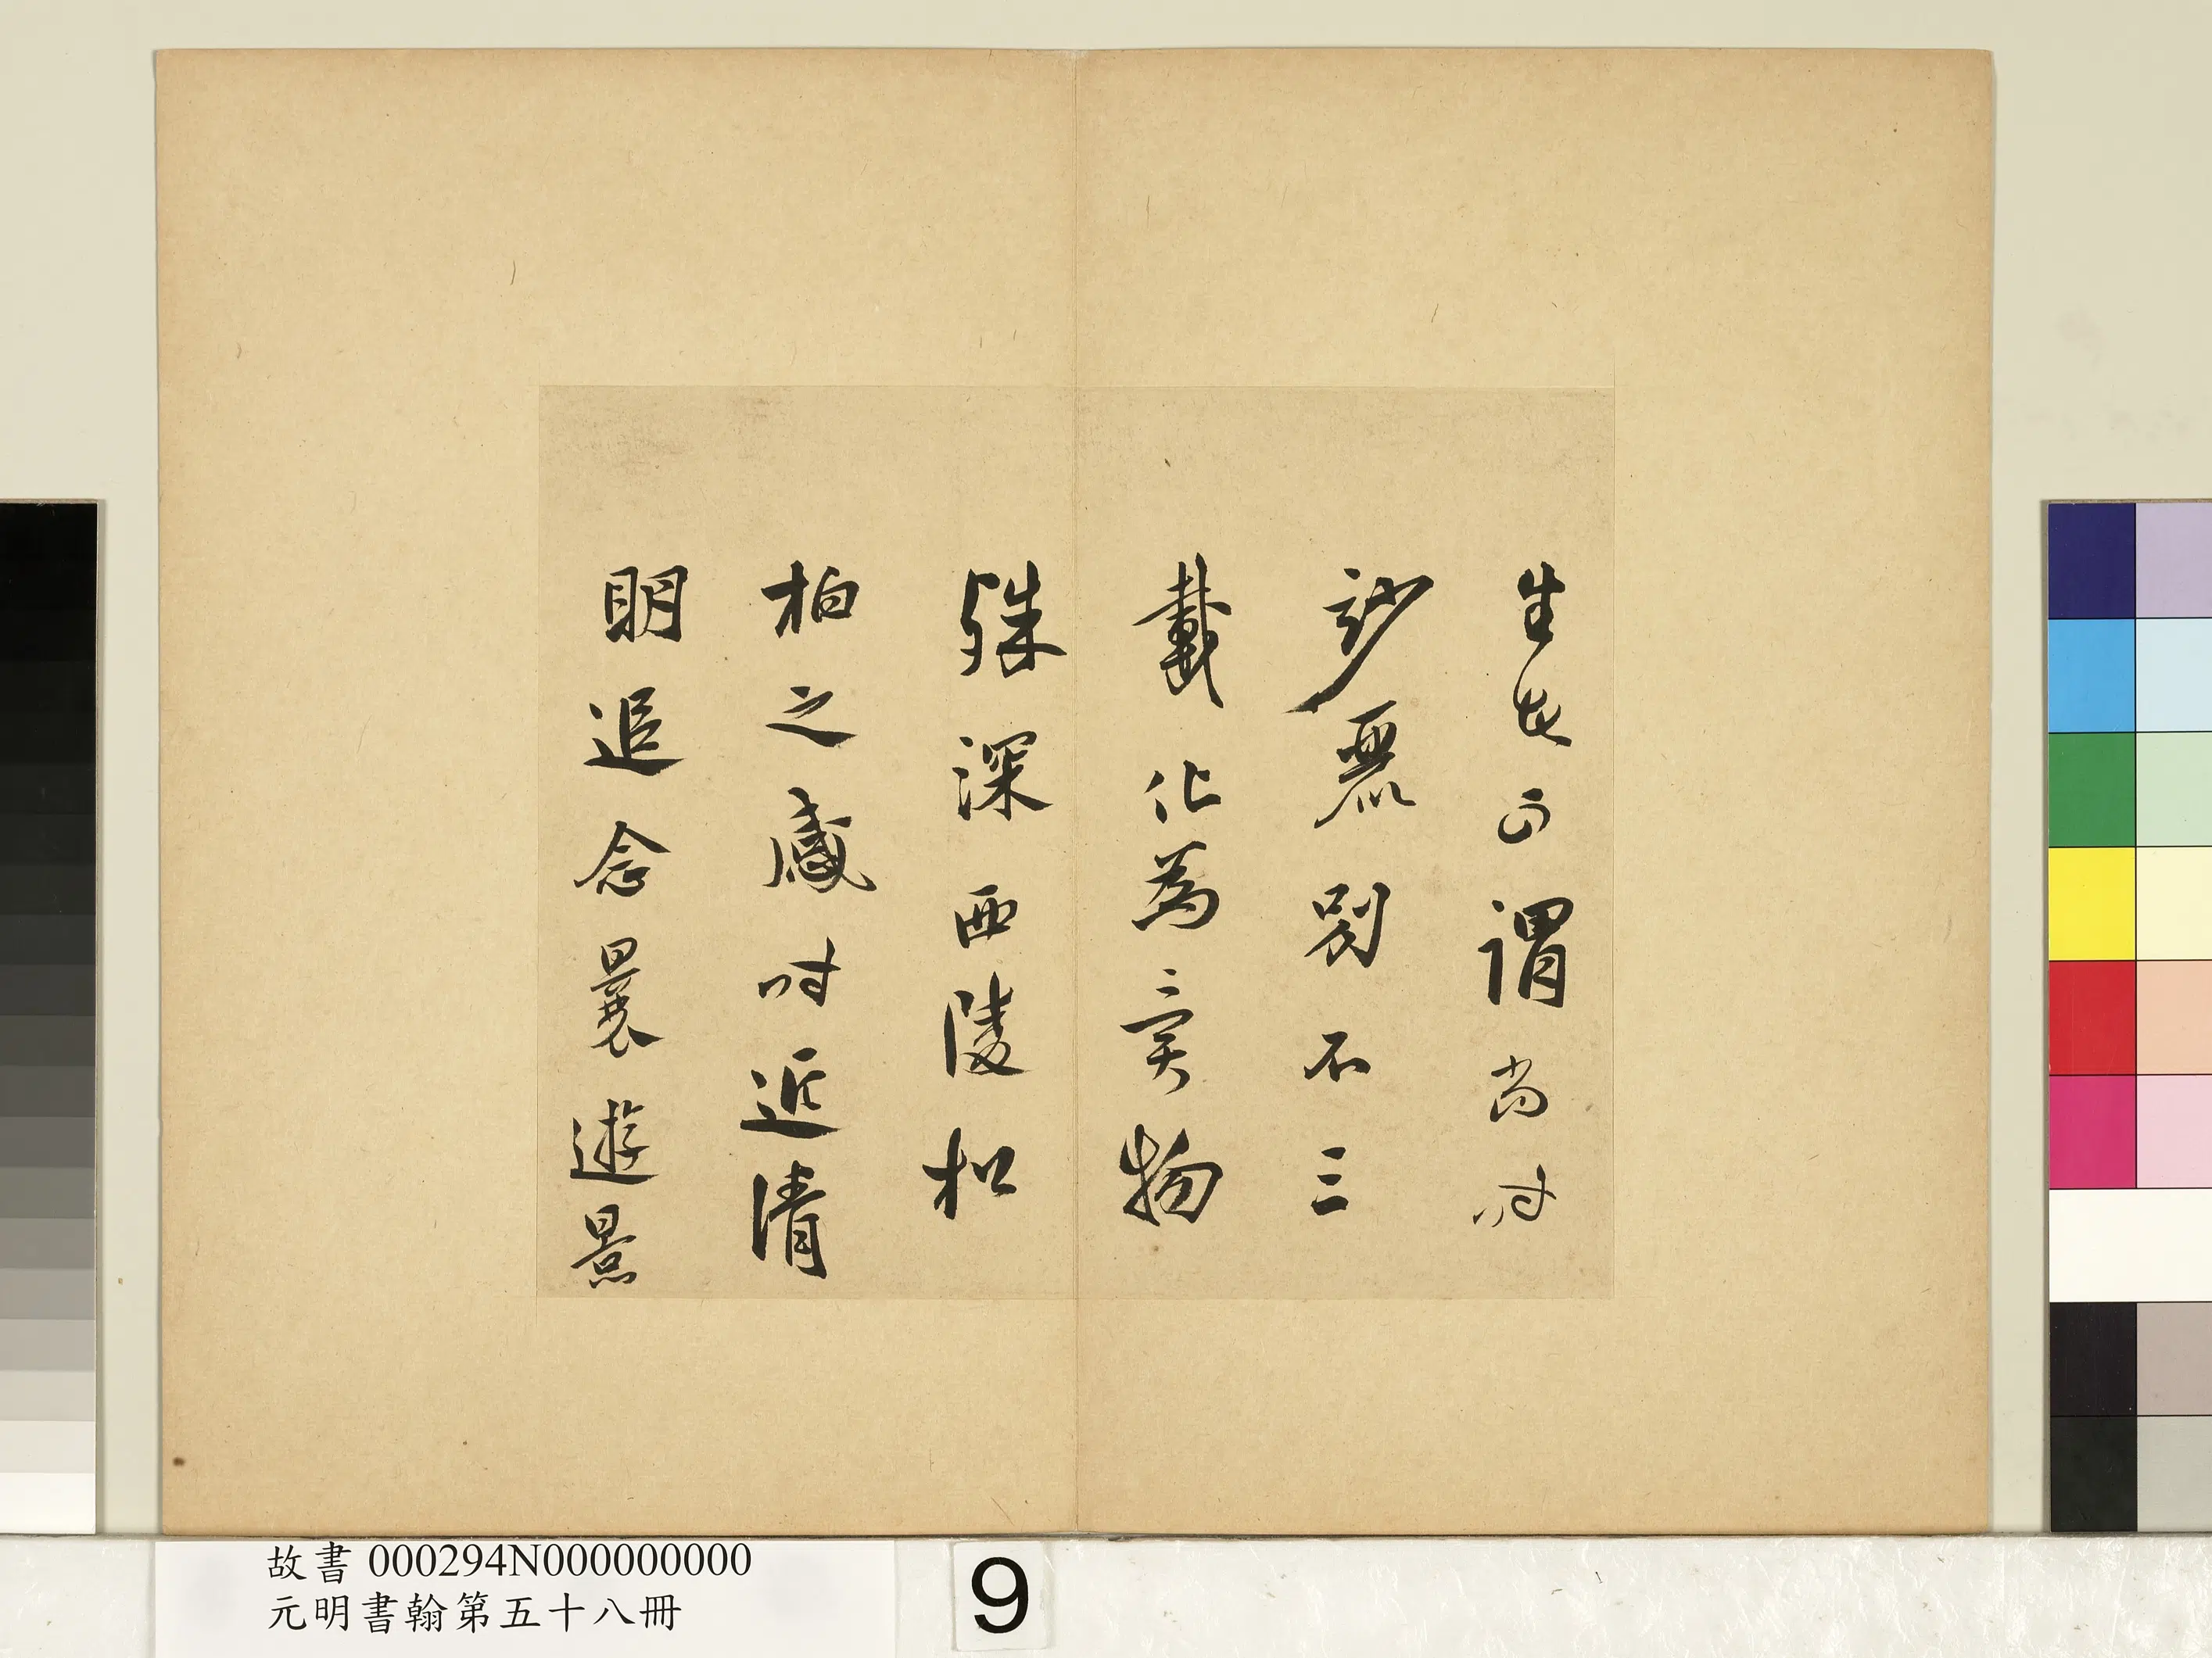 生謂當時
玅麗別不三
載化為異物
殊深西陵松
柏之感時近清
明追念曩遊景
故書 000294N000000000
元明書翰第五十八冊
9